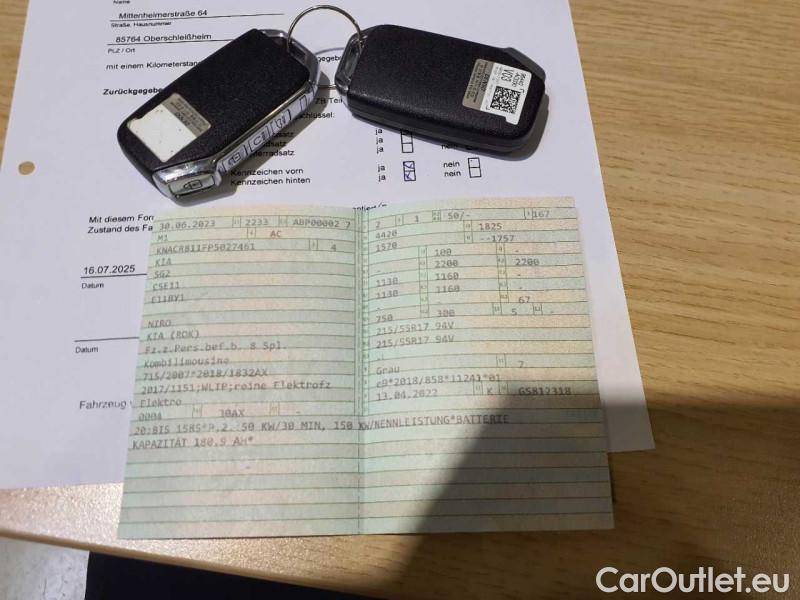 Name
Mittenheimerstraße 64
Straße, Hausnummer
85764 Oberschleißheim
PLZ / Ort
mit einem Kilometerstan
gegebe
Zurückgegebe
ZB Teil
hlüssel:
ja
ja nein
Kennzeichen vorn ja nein
Kennzeichen hinten ja nein
Mit diesem For
Zustand des Fa
16.07.2025
Datum
Datum
Fahrzeug
V03
30.06.2023 2233 ABP00002 7
M1 AC
KNACR811FP5027461 4
KIA
SG2
C5E11
E11BY1
NIRO
KIA (ROK)
Fz.z.Pers.bef.b. 8 Spl.
Kombilimousine
715/2007*2018/1832AX
2017/1151;WLTP;reine Elektrofz
Elektro
0004 10AX -
2 1 50/- 167
4420 1825
1570 --1757
- 100 -
- 2200 2200
1130 1160 -
1130 1160 -
- - 67
750 300 5 -
215/55R17 94V
215/55R17 94V
-
Grau 7
e9*2018/858*11241*01
13.04.2022 K GS812318
20:BIS 1585*P.2: 50 KW/30 MIN, 150 KW/NENNLEISTUNG*BATTERIE
KAPAZITÄT 180.9 AH*
CarOutlet.eu